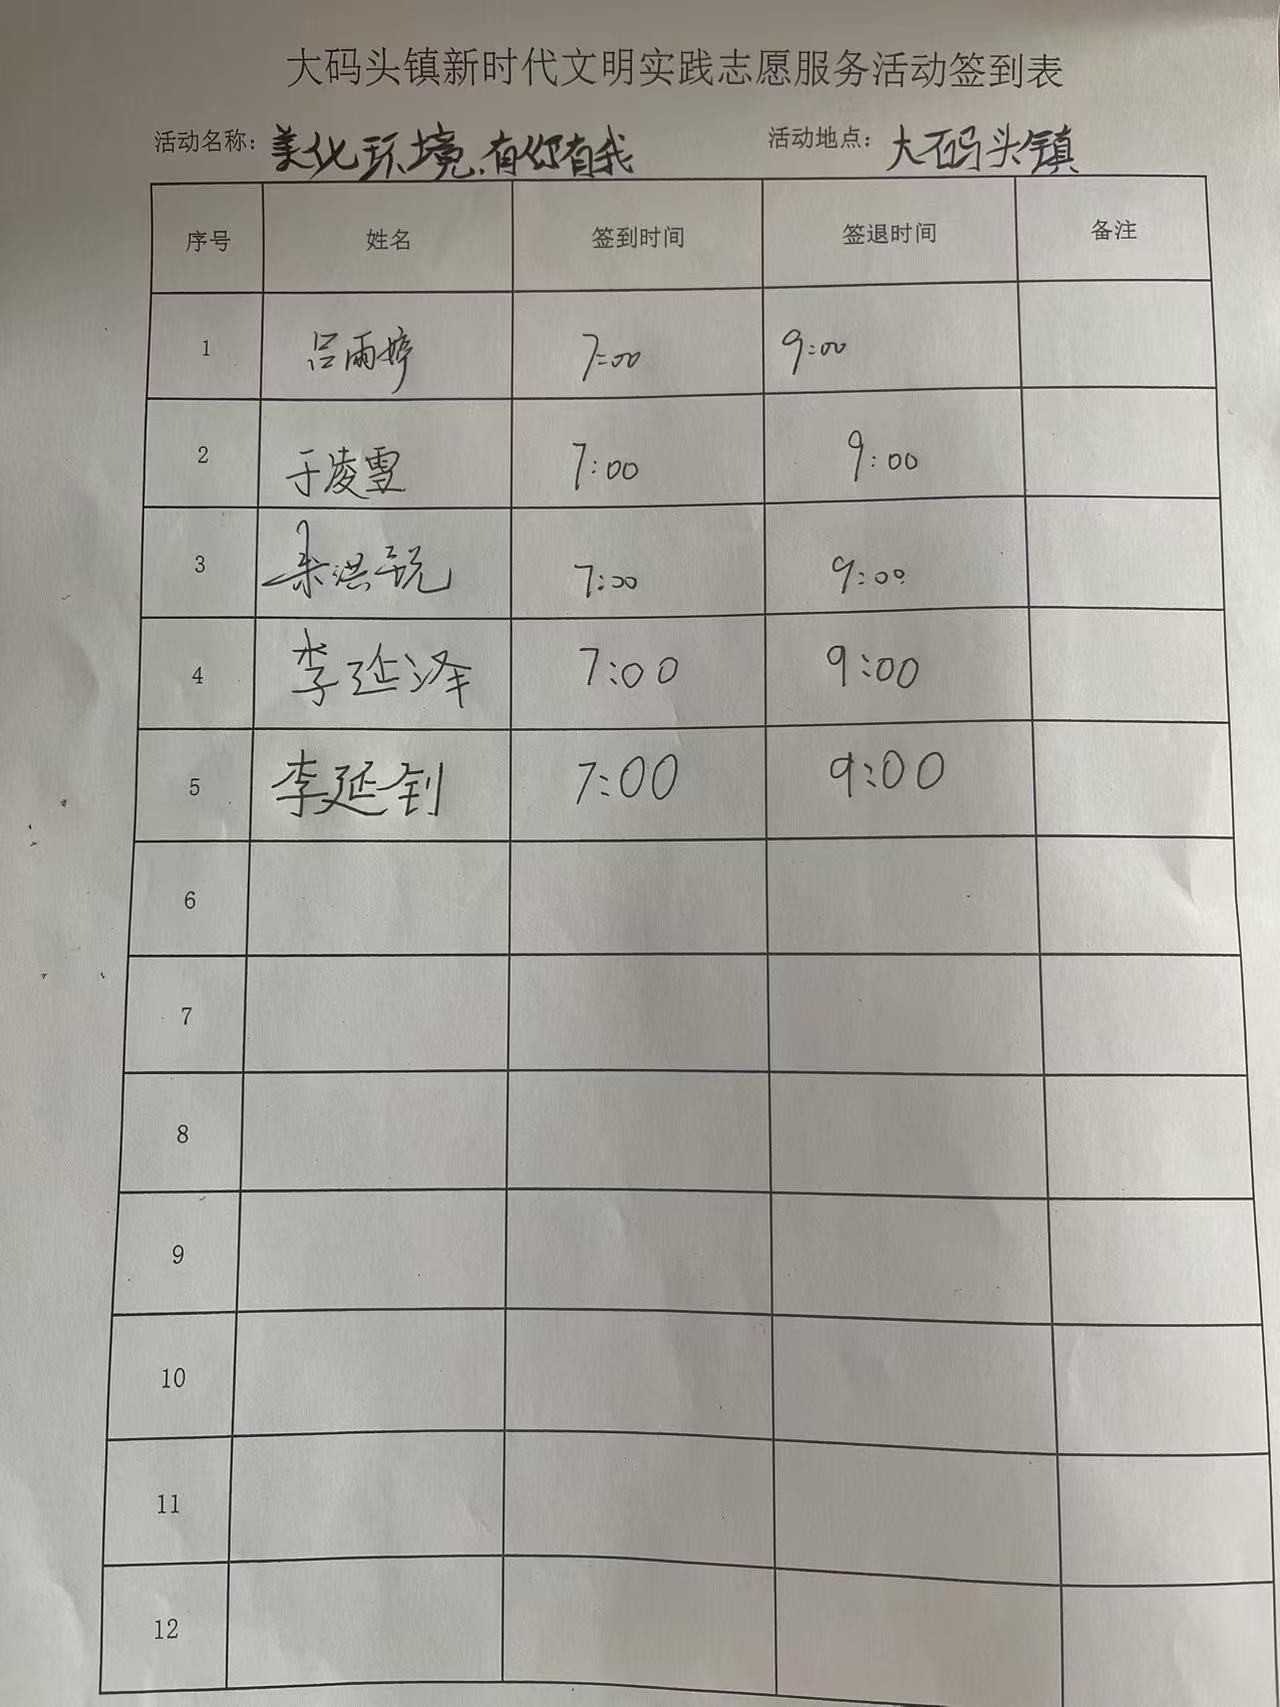 大码头镇新时代文明实践志愿服务活动签到表
活动名称：美化环境.有你有我 活动地点：大码头镇
序号 姓名 签到时间 签退时间 备注
1 吕雨婷 7:00 9:00
2 于凌雪 7:00 9:00
3 7:00 9:00
4 李延泽 7:00 9:00
5 李延钊 7:00 9:00
6
7
8
9
10
11
12